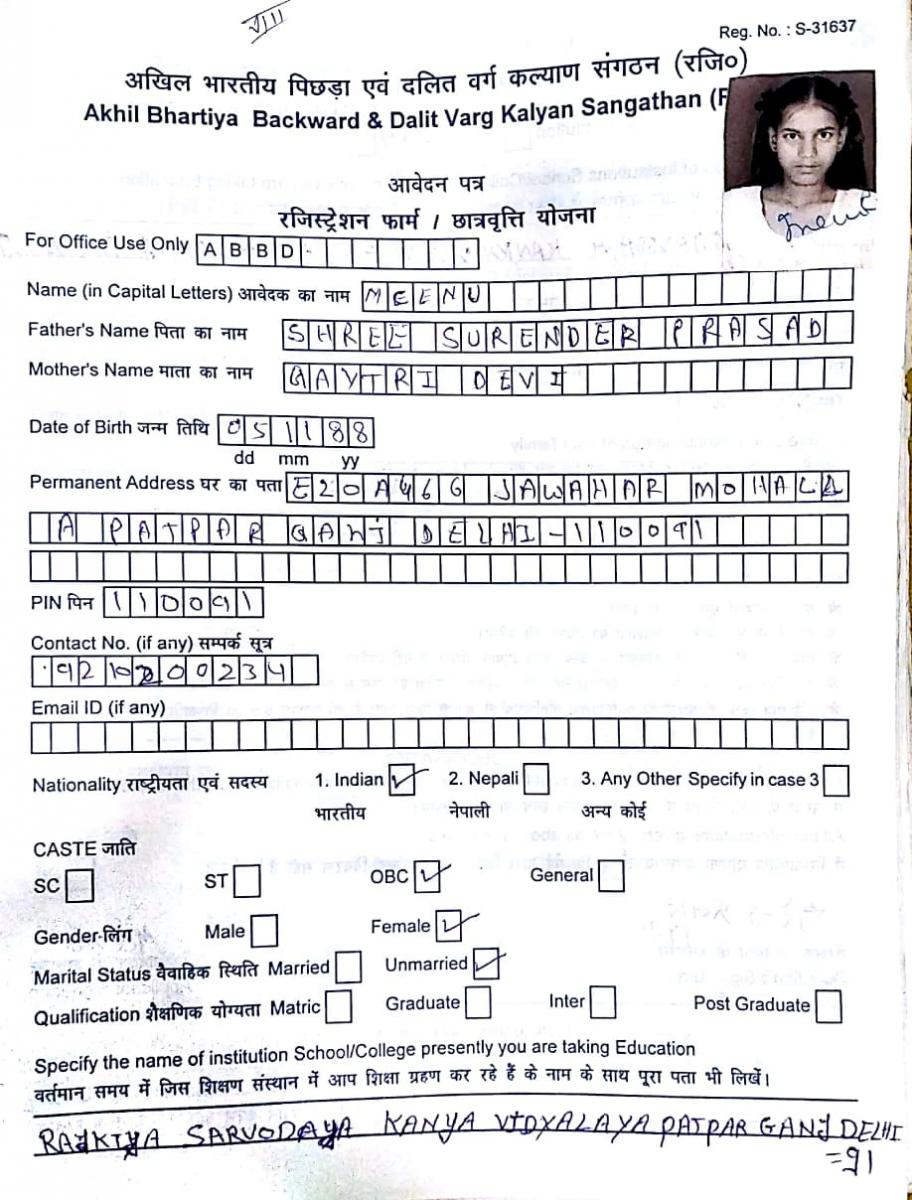 VIII
Reg. No. : S-31637
अखिल भारतीय पिछड़ा एवं दलित वर्ग कल्याण संगठन (रजि०)
Akhil Bhartiya Backward & Dalit Varg Kalyan Sangathan (R
आवेदन पत्र
रजिस्ट्रेशन फार्म / छात्रवृत्ति योजना
For Office Use Only ABBD
Name (in Capital Letters) आवेदक का नाम MEENU
Father's Name पिता का नाम SHREE SURENDER PRASAD
Mother's Name माता का नाम GAYTRI DEVI
Date of Birth जन्म तिथि 051188
dd mm yy
Permanent Address घर का पता E20A466 JAWAHAR MOHALL
A PATPAR GANJ DELHI-110091
PIN पिन 110091
Contact No. (if any) सम्पर्क सूत्र
9210200234
Email ID (if any)
Nationality राष्ट्रीयता एवं सदस्य 1. Indian ✓ 2. Nepali 3. Any Other Specify in case 3
भारतीय नेपाली अन्य कोई
CASTE जाति
SC ST OBC ✓ General
Gender-लिंग Male Female ✓
Marital Status वैवाहिक स्थिति Married Unmarried ✓
Qualification शैक्षणिक योग्यता Matric Graduate Inter Post Graduate
Specify the name of institution School/College presently you are taking Education
वर्तमान समय में जिस शिक्षण संस्थान में आप शिक्षा ग्रहण कर रहे हैं के नाम के साथ पूरा पता भी लिखें।
RAJKIYA SARVODAYA KANYA VIDYALAYA PATPAR GANJ DELHI
=91